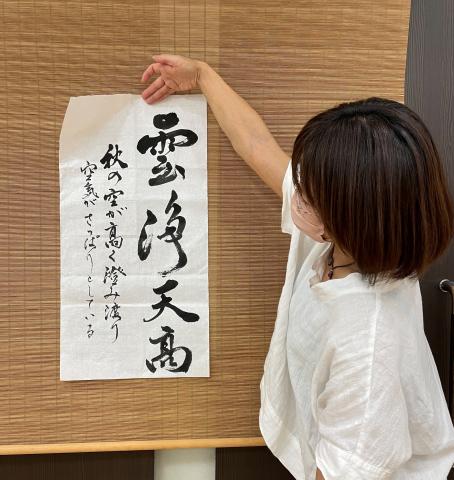 雲浄天高
秋の空が高く澄み渡り
空気がさっぱりとしている